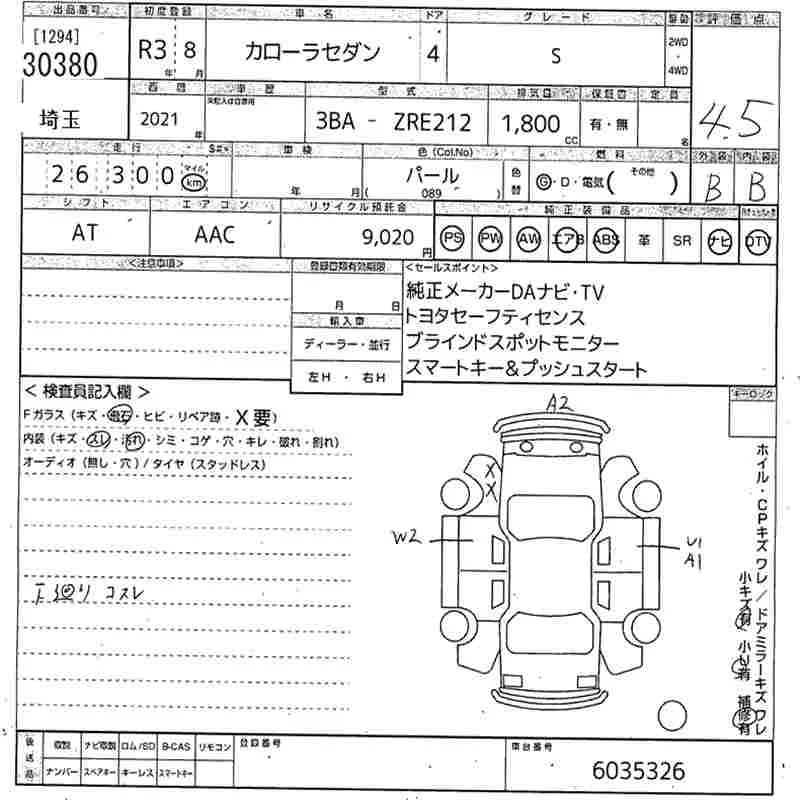 出品番号 初度登録 車名 ドア グレード 駆動 評価点
[1294]
30380
R3 年 8 月
カローラセダン
4
S
2WD
4WD
4.5
埼玉
西暦 車歴 型式 排気量 保証書 定員
未記入は自家用
2021 年
3BA - ZRE212
1,800 CC
有・無
名
走行 車検 色(Col.No) 燃料 外装 内装
26300
マイル
km
年 月
パール
( 089 )
色替
G・D・電気( その他 )
B B
シフト エアコン リサイクル預託金 純正装備品
AT
AAC
9,020 円
PS PW AW エアB ABS 革 SR ナビ DTV
<注意事項>
登録書類有効期限
月 日
輸入車
ディーラー・並行
左H ・ 右H
<セールスポイント>
純正メーカーDAナビ・TV
トヨタセーフティセンス
ブラインドスポットモニター
スマートキー&プッシュスタート
キーロック
< 検査員記入欄 >
Fガラス(キズ・飛石・ヒビ・リペア跡・X要)
内装(キズ・スレ・汚れ・シミ・コゲ・穴・キレ・破れ・割れ)
オーディオ(無し・穴)/タイヤ(スタッドレス)
下廻り コスレ
A2
X
X
W2
U1
A1
ホイル・CPキズワレ/ドアミラーキズワレ
小キズ有 小U有 補修有
後送品
取説 ナビ取説 ロム/SD B-CAS リモコン
ナンバー スペアキー キーレス スマートキー
登録番号
車台番号
6035326